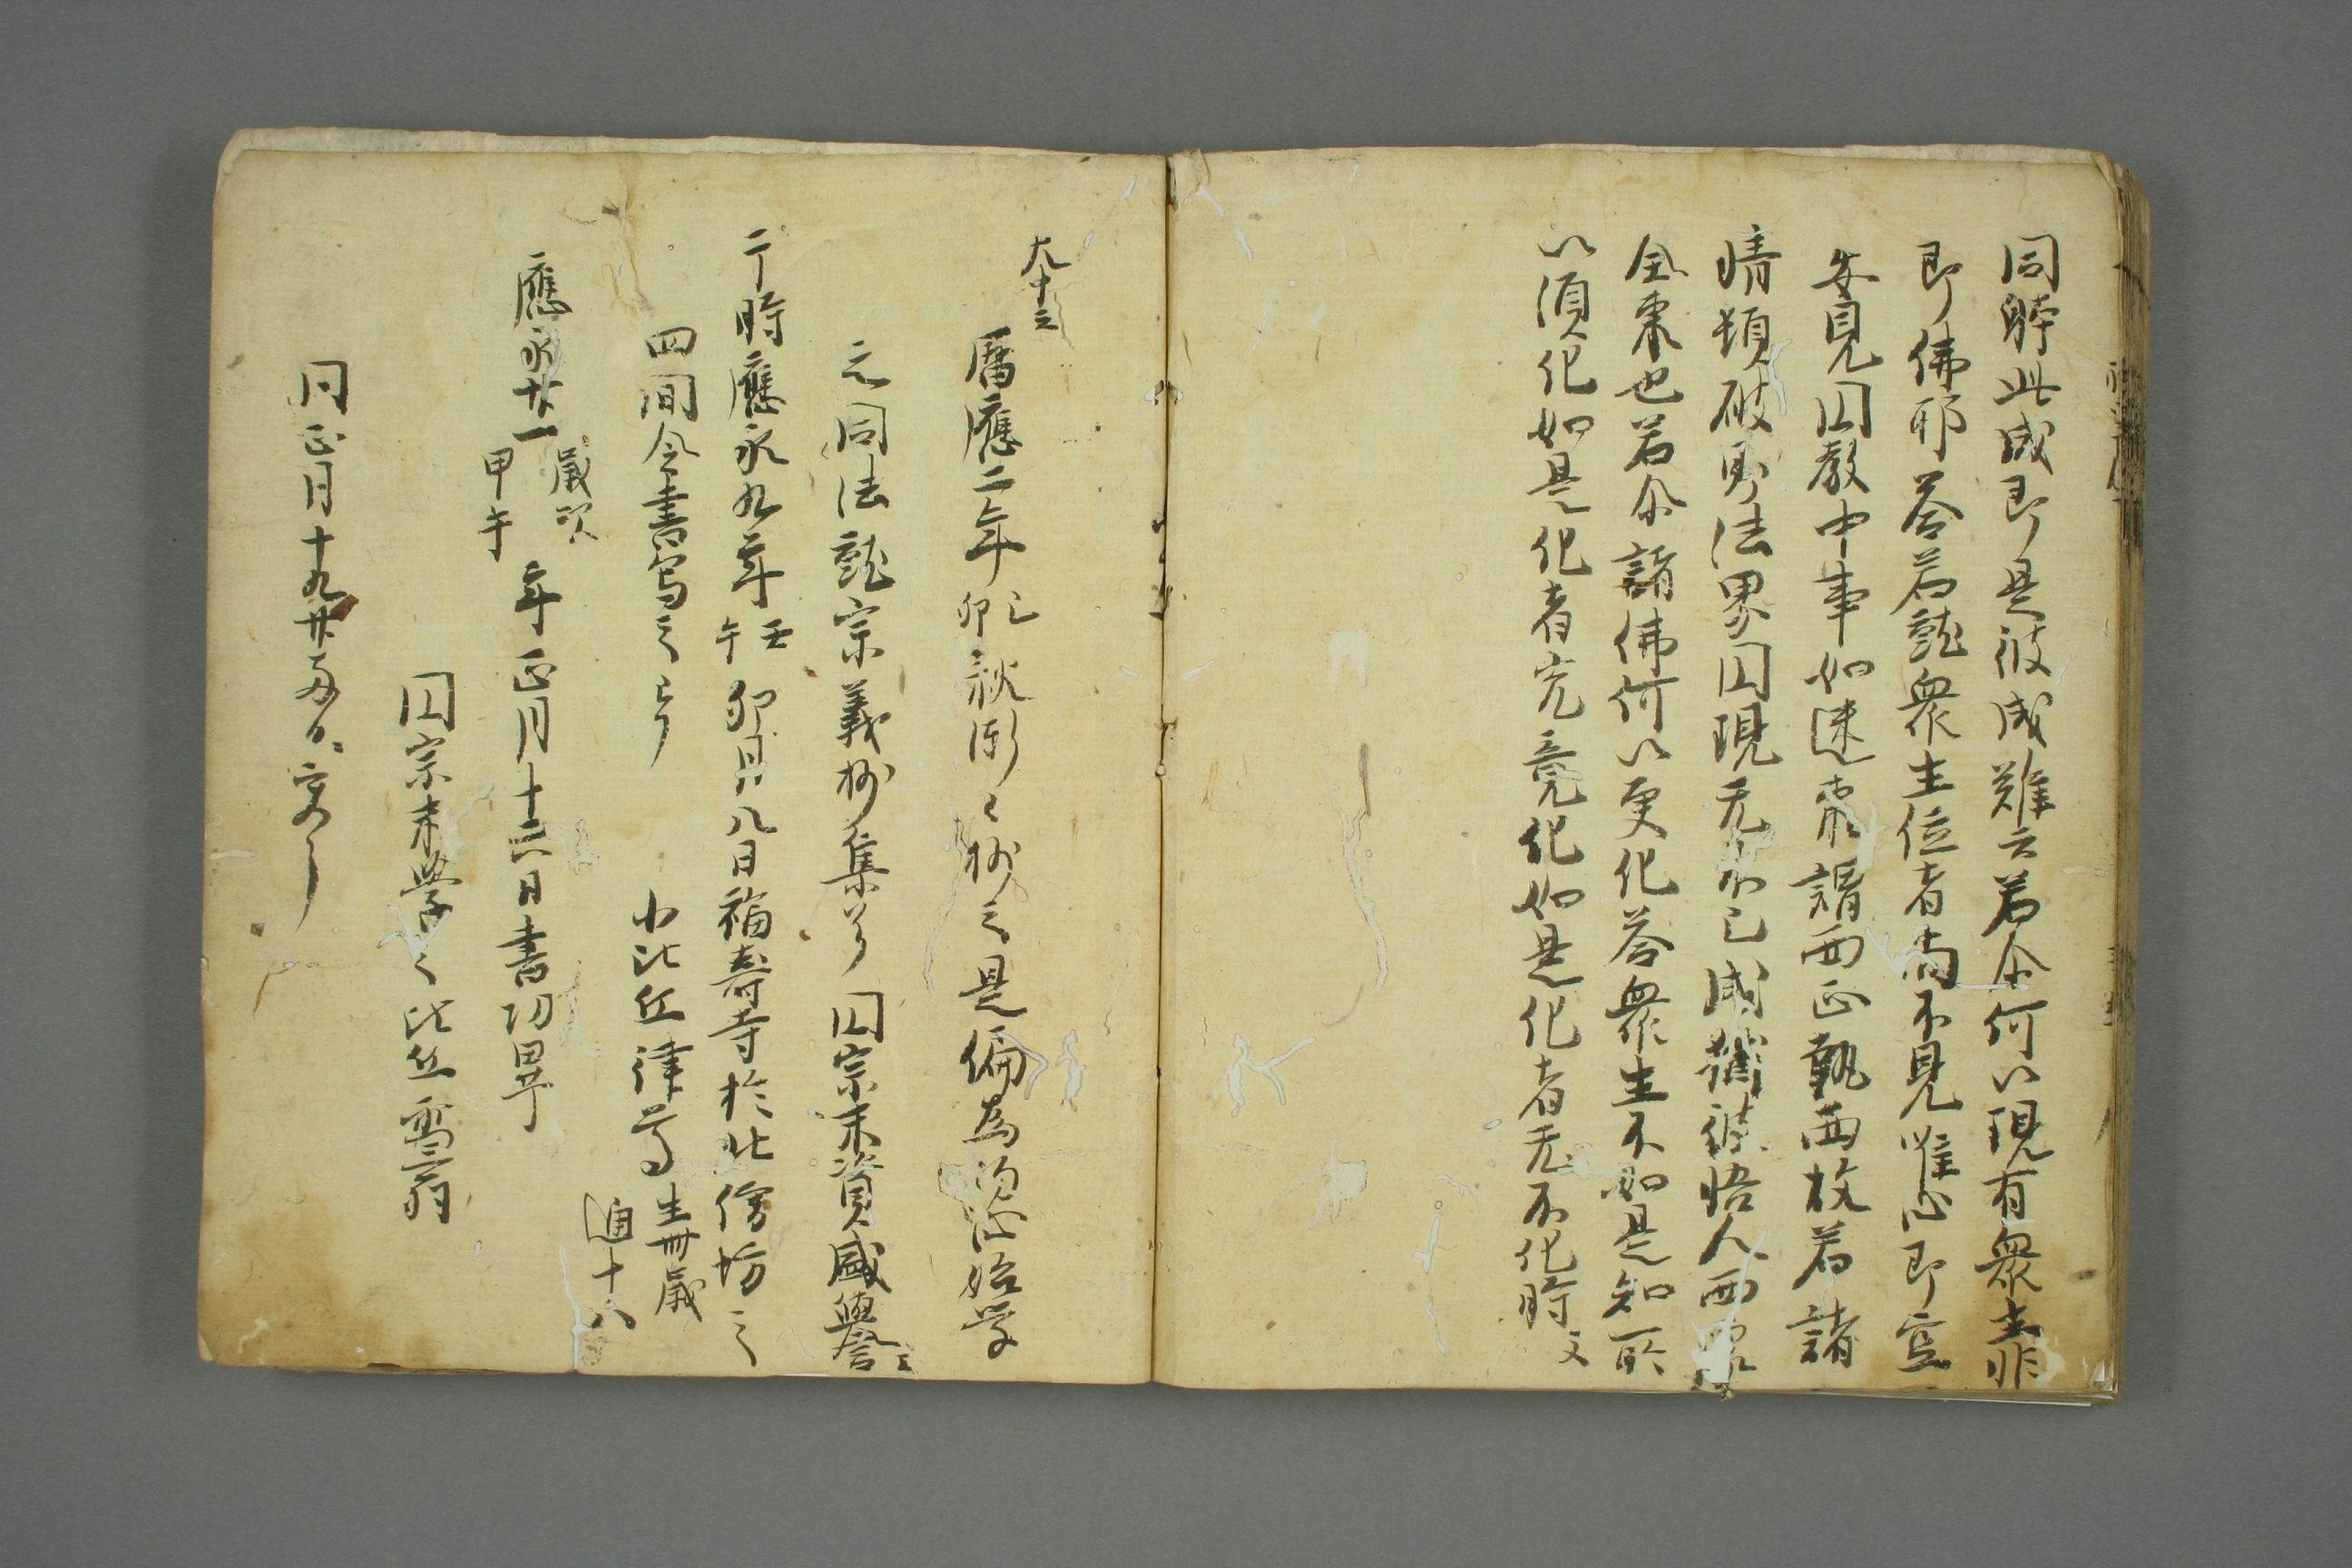 同躰此成即是彼成難云若尒何以現有衆生非
即佛耶答若就衆生位者尚不見唯心即空
安見囙教中事如迷東謂西正執西故若諸
情頓破則法界囙現无不已成猶彼悟人西即
全東也若尒諸佛何以更化答衆生不如是知所
以須化如是化者究竟化如是化者无不化時文
九十三
曆應二年己卯秋漸々抄之是偏為同心始学
之同法就宗義抄集了囙宗末資盛譽云
于時應永九年壬午卯月廿八日福壽寺於北僧坊之
四間令書寫之了
小比丘律尊生卌歳
通十八
應永廿一歳次甲午年正月十六日書功畢
囙宗末學々比丘
同正月十九廿両日交了